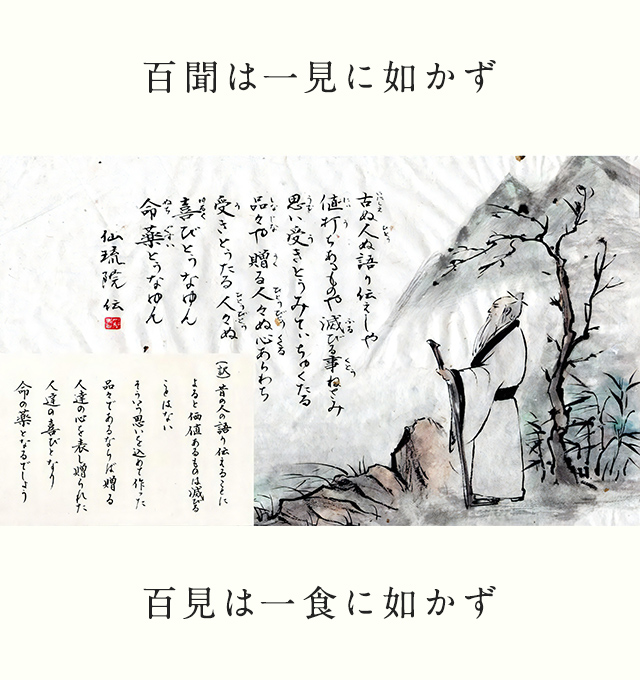 百聞は一見に如かず
古ぬ人ぬ語り伝えしや
値打ちあるものや滅びる事ねてみ
思い受きとうみていちゅくたる
品々や贈る人々ぬ心あらわち
受きとうたる人々ぬ
喜びとぅなゆん
命薬とぅなゆん
仙琉院 伝
(訳)昔の人の語り伝えることに
よると価値あるものは滅る
ことはない
そういう思いを込めて作った
品々であるならば贈る
人達の心を表し贈られた
人達の喜びとなり
命の薬となるでしょう
百見は一食に如かず